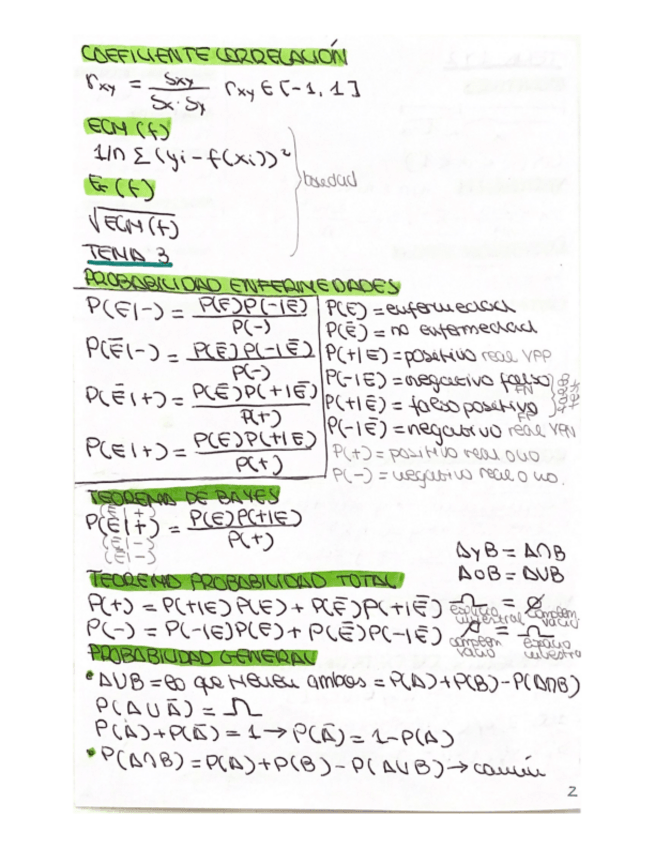 COEFICIENTE CORRELACIÓN
rxy = Sxy / Sx · Sy   rxy ∈ [-1, 1]
ECM (f)
1/n Σ (yi - f(xi))²
√ECM(f)
TEMA 3
PROBABILIDAD ENFERMEDADES
P(E|-) = P(E)P(-|E) / P(-)
P(Ē|-) = P(Ē)P(-|Ē) / P(-)
P(Ē|+) = P(Ē)P(+|Ē) / P(+)
P(E|+) = P(E)P(+|E) / P(+)
P(E) = enfermedad
P(Ē) = no enfermedad
P(+|E) = positivo real VPP
P(-|E) = negativo falso FN
P(+|Ē) = falso positivo FP
P(-|Ē) = negativo real VPN
P(+) = positivo real o no
P(-) = negativo real o no.
TEOREMA DE BAYES
P(E|+) = P(E)P(+|E) / P(+)
A y B = A∩B
A o B = A∪B
TEOREMA PROBABILIDAD TOTAL
P(+) = P(+|E)P(E) + P(Ē)P(+|Ē)
P(-) = P(-|E)P(E) + P(Ē)P(-|Ē)
espacio muestral
vacío
vacío
espacio muestral
PROBABILIDAD GENERAL
• A∪B = lo que tienen ambos = P(A) + P(B) - P(A∩B)
P(A∪Ā) = Ω
P(A) + P(Ā) = 1 → P(Ā) = 1 - P(A)
• P(A∩B) = P(A) + P(B) - P(A∪B) → común
2